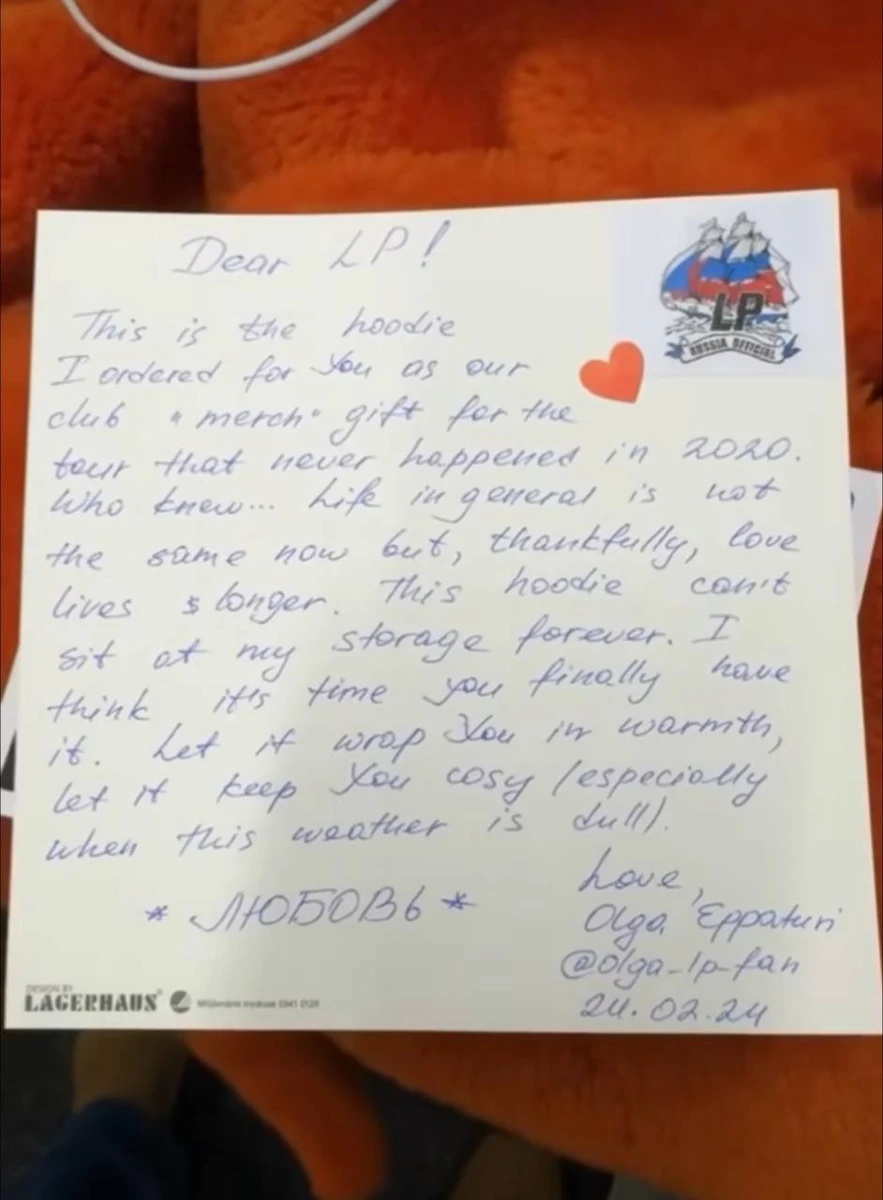 Dear LP!
LP
RUSSIA OFFICIAL
This is the hoodie
I ordered for You as our
club "merch" gift for the
tour that never happened in 2020.
Who knew... Life in general is not
the same now but, thankfully, love
lives longer. This hoodie can't
sit at my storage forever. I
think it's time you finally have
it. Let it wrap You in warmth,
let it keep You cosy (especially
when this weather is dull).
Love,
* ЛЮБОВЬ *
Olga Eppaturi
@olga_lp_fan
24.02.24
DESIGN BY
LAGERHAUS
Miljömärkt trycksak 3041 0129